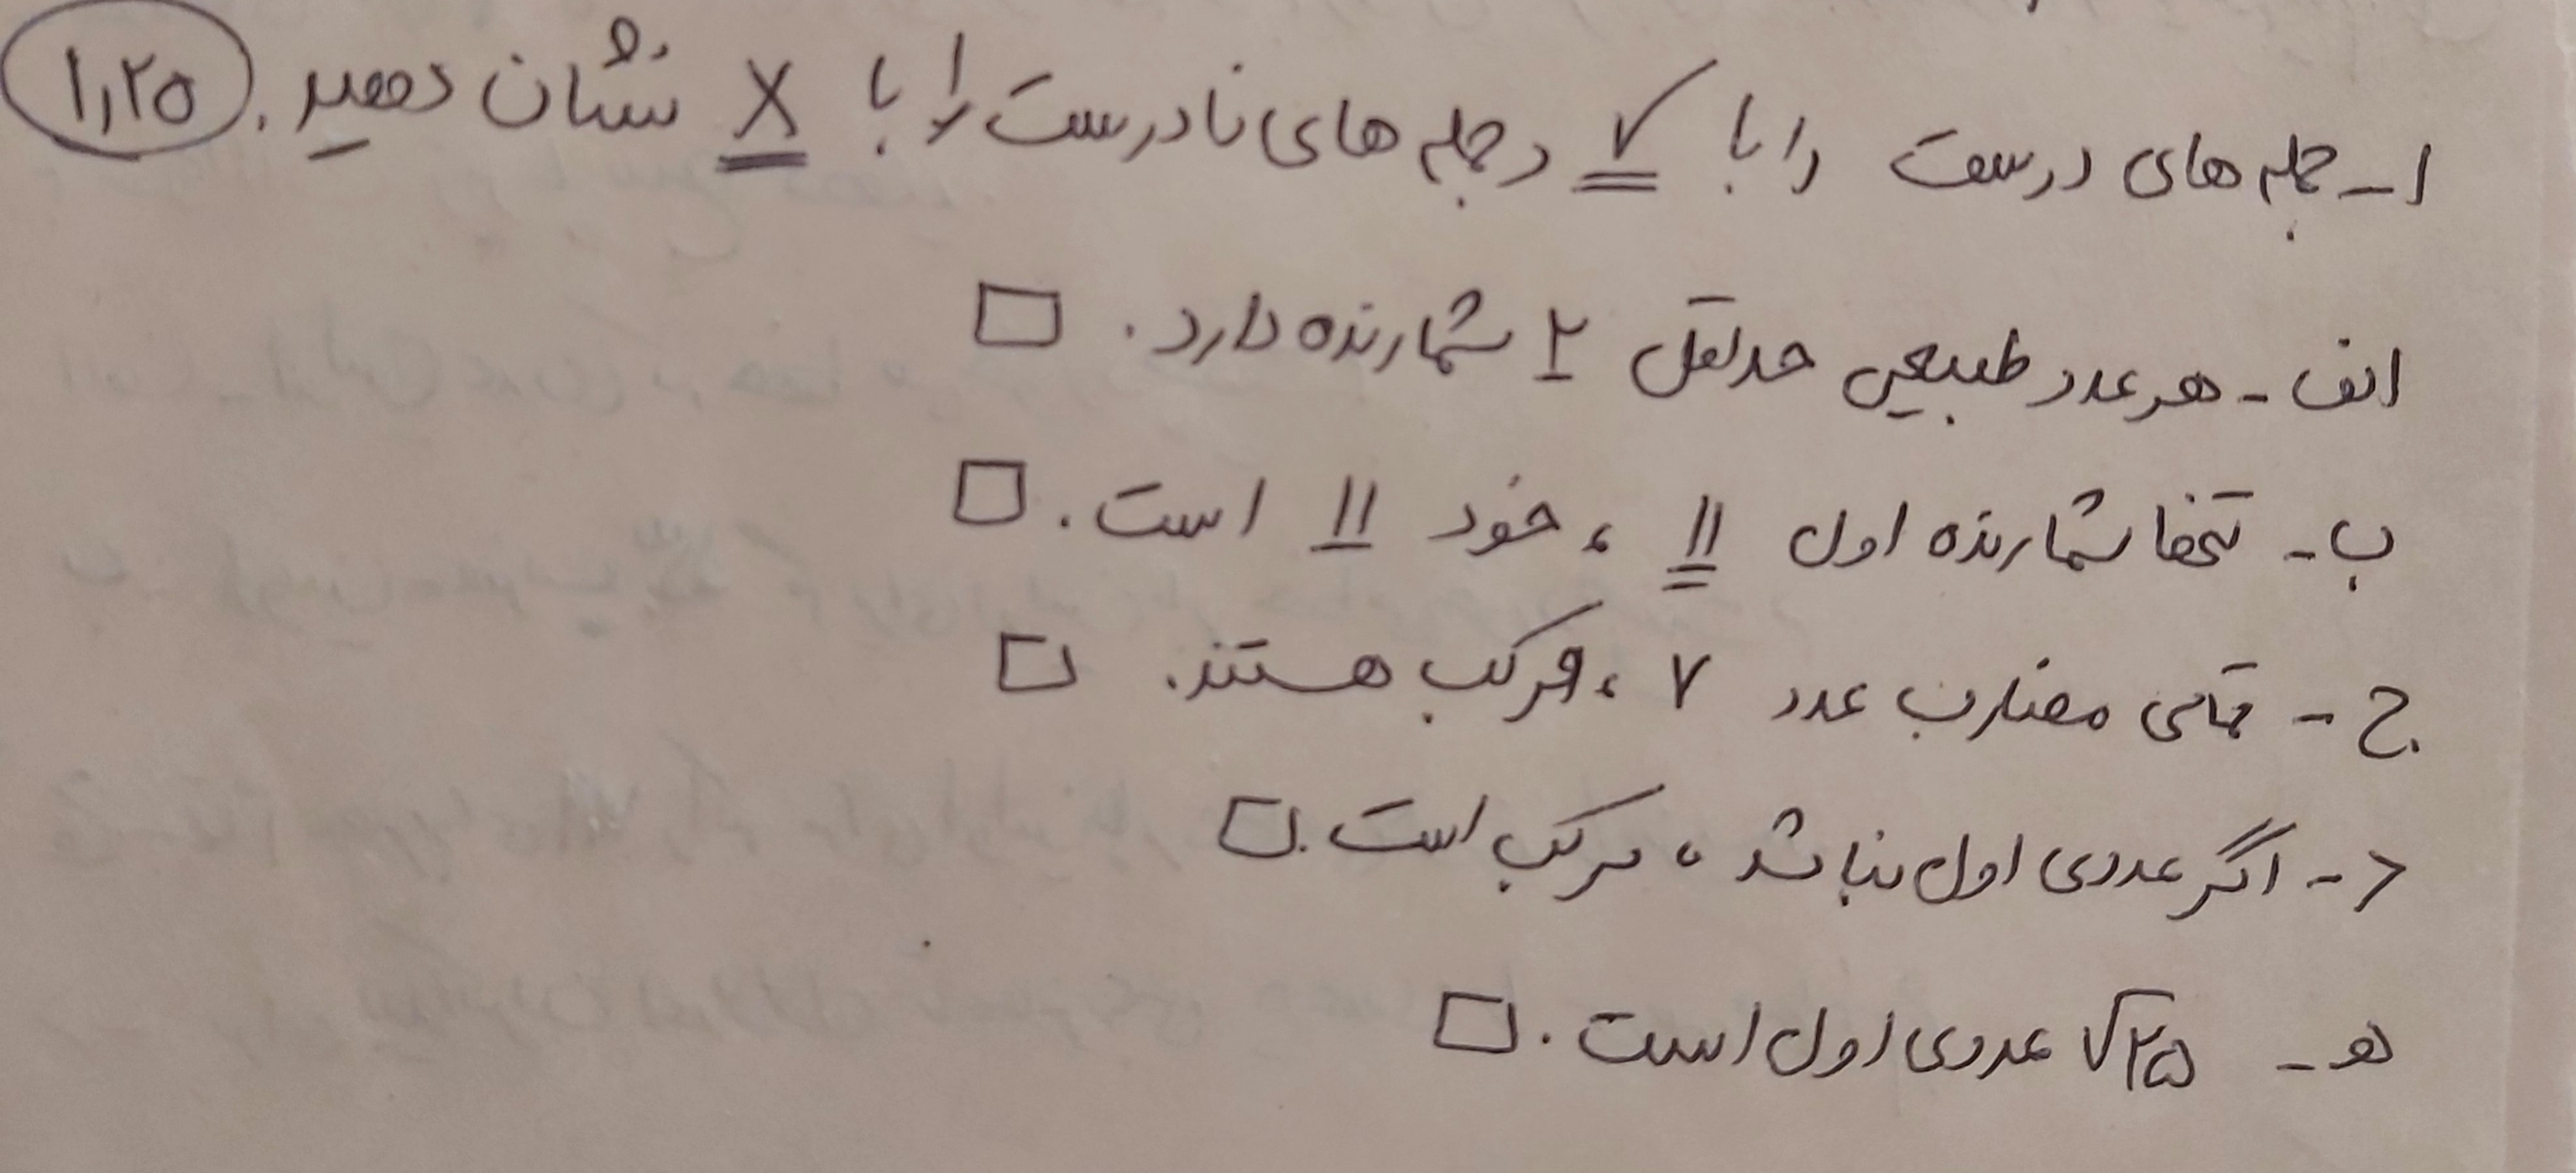 ۱- جمله های درست را با ✓ و جمله های نادرست را با X نشان دهید. ۱,۲۵
الف- هر عدد طبیعی حداقل ۲ شمارنده دارد. □
ب- تنها شمارنده اول ۱۱ ، خود ۱۱ است. □
ج- تمامی مضارب عدد ۷ ، مرکب هستند. □
د- اگر عددی اول نباشد ، مرکب است. □
هـ- √۲۵ عددی اول است. □